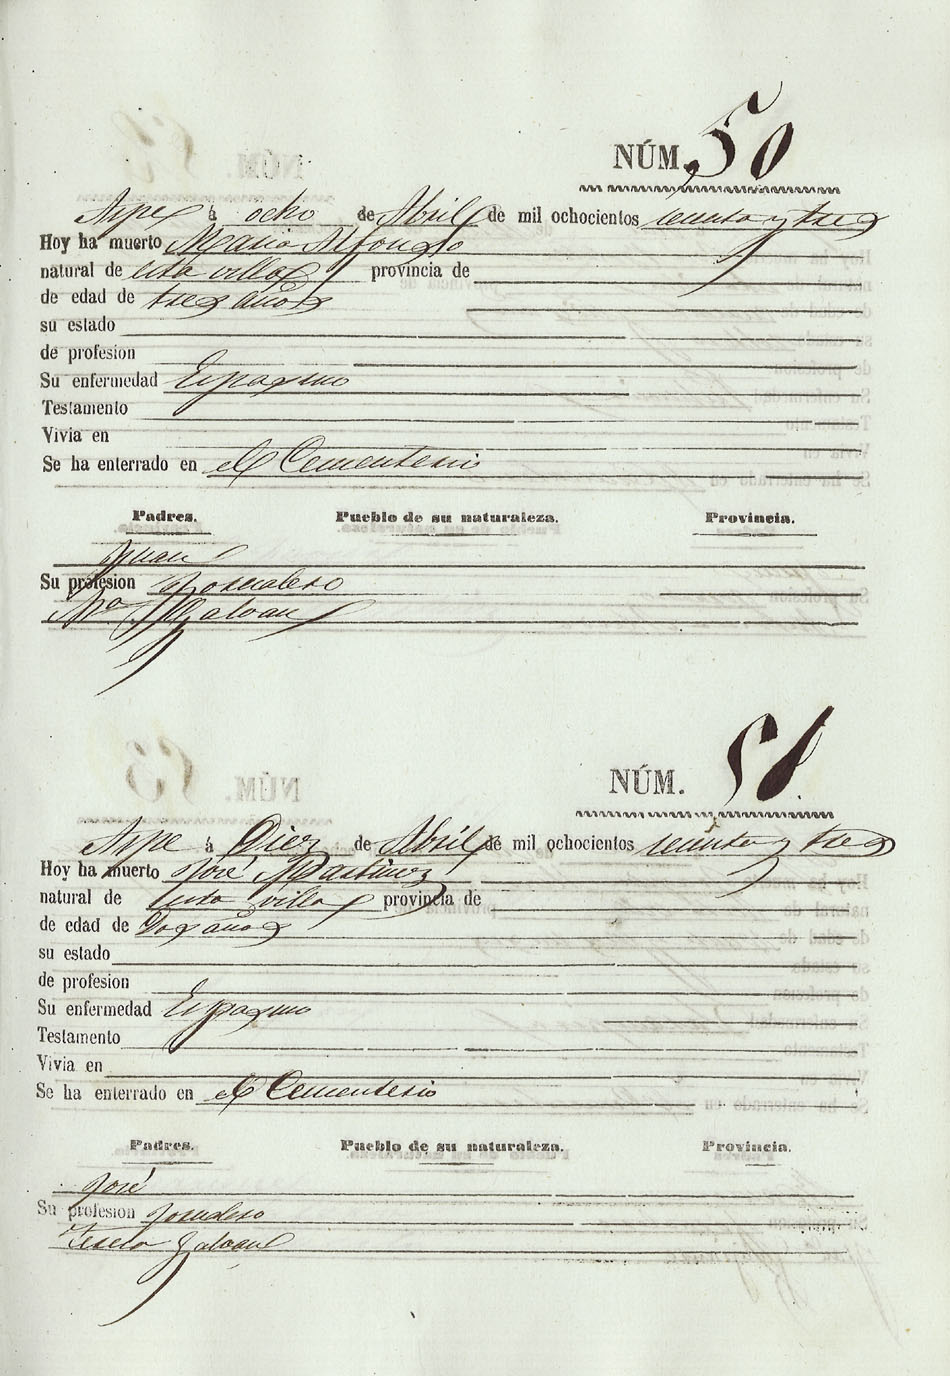 NÚM. 50
Aspe á ocho de Abril de mil ochocientos sesenta y tres
Hoy ha muerto Maria Alfonso
natural de esta villa provincia de
de edad de tres años
su estado
de profesion
Su enfermedad Espasmo
Testamento
Vivia en
Se ha enterrado en el Cementerio
Padres. Pueblo de su naturaleza. Provincia.
Juan
Su profesion Jornalero
Mª Galvan
NÚM. 51
Aspe á Diez de Abril de mil ochocientos sesenta y tres
Hoy ha muerto José Martinez
natural de esta villa provincia de
de edad de Dos años
su estado
de profesion
Su enfermedad Espasmo
Testamento
Vivia en
Se ha enterrado en el Cementerio
Padres. Pueblo de su naturaleza. Provincia.
José
Su profesion Jornalero
Galvan